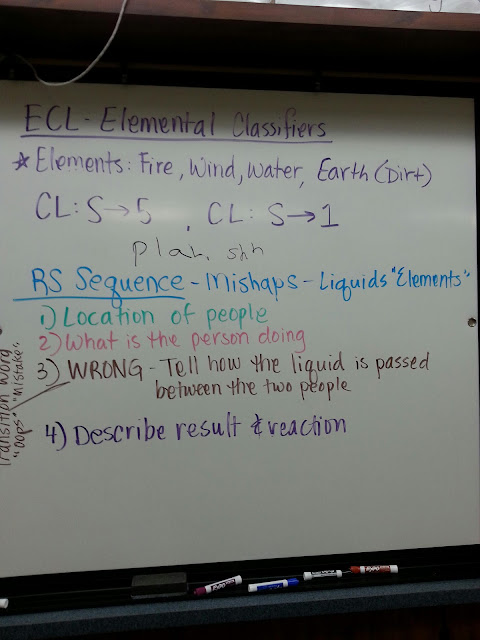 ECL - Elemental Classifiers
* Elements: Fire, Wind, Water, Earth (Dirt)
CL: S→5 , CL: S→1
plah, shh
RS Sequence - Mishaps - Liquids "Elements"
1) Location of people
2) What is the person doing
3) WRONG - Tell how the liquid is passed
between the two people
Transition word
"oops" "mistake"
4) Describe result & reaction